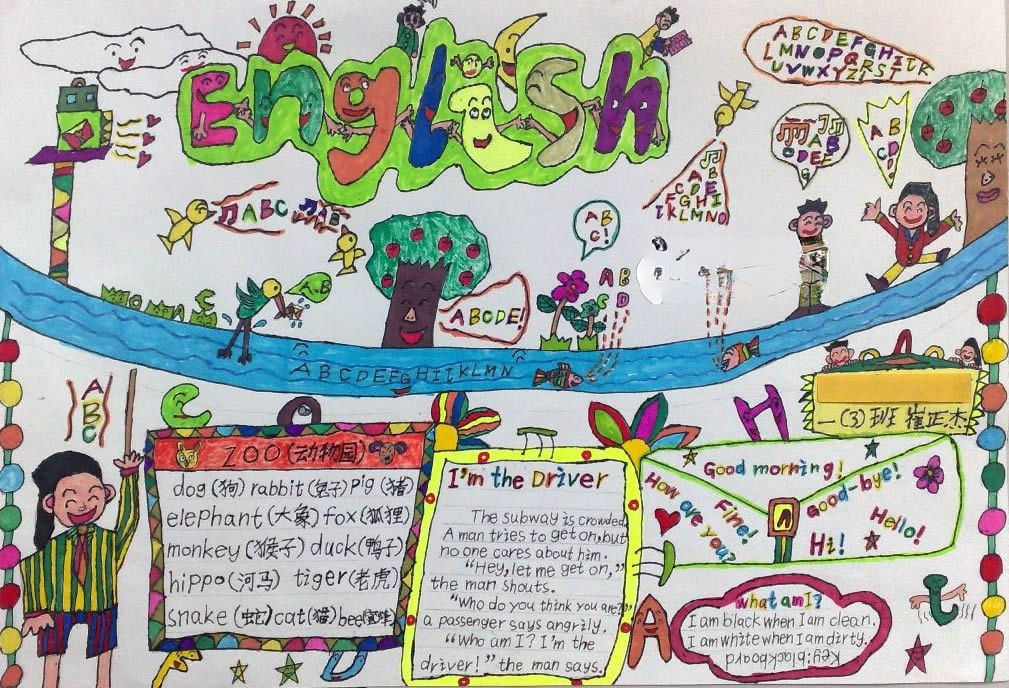 English
ABCDEFG
LMNOPQRST
UVWXYZ
ABC
AB
C!
ABCDE!
ABCDEFGHIJKLMN
A
B
C
ZOO(动物园)
dog(狗) rabbit(兔子) pig(猪)
elephant(大象) fox(狐狸)
monkey(猴子) duck(鸭子)
hippo(河马) tiger(老虎)
snake(蛇) cat(猫) bee(蜜蜂)
I'm the Driver
The subway is crowded.
A man tries to get on, but
no one cares about him.
"Hey, let me get on,"
the man shouts.
"Who do you think you are?"
a passenger says angrily.
"Who am I? I'm the
driver!" the man says.
一(3)班 崔正杰
Good morning!
How are you?
Fine!
Good-bye!
Hello!
Hi!
What am I?
I am black when I am clean.
I am white when I am dirty.
Key: blackboard